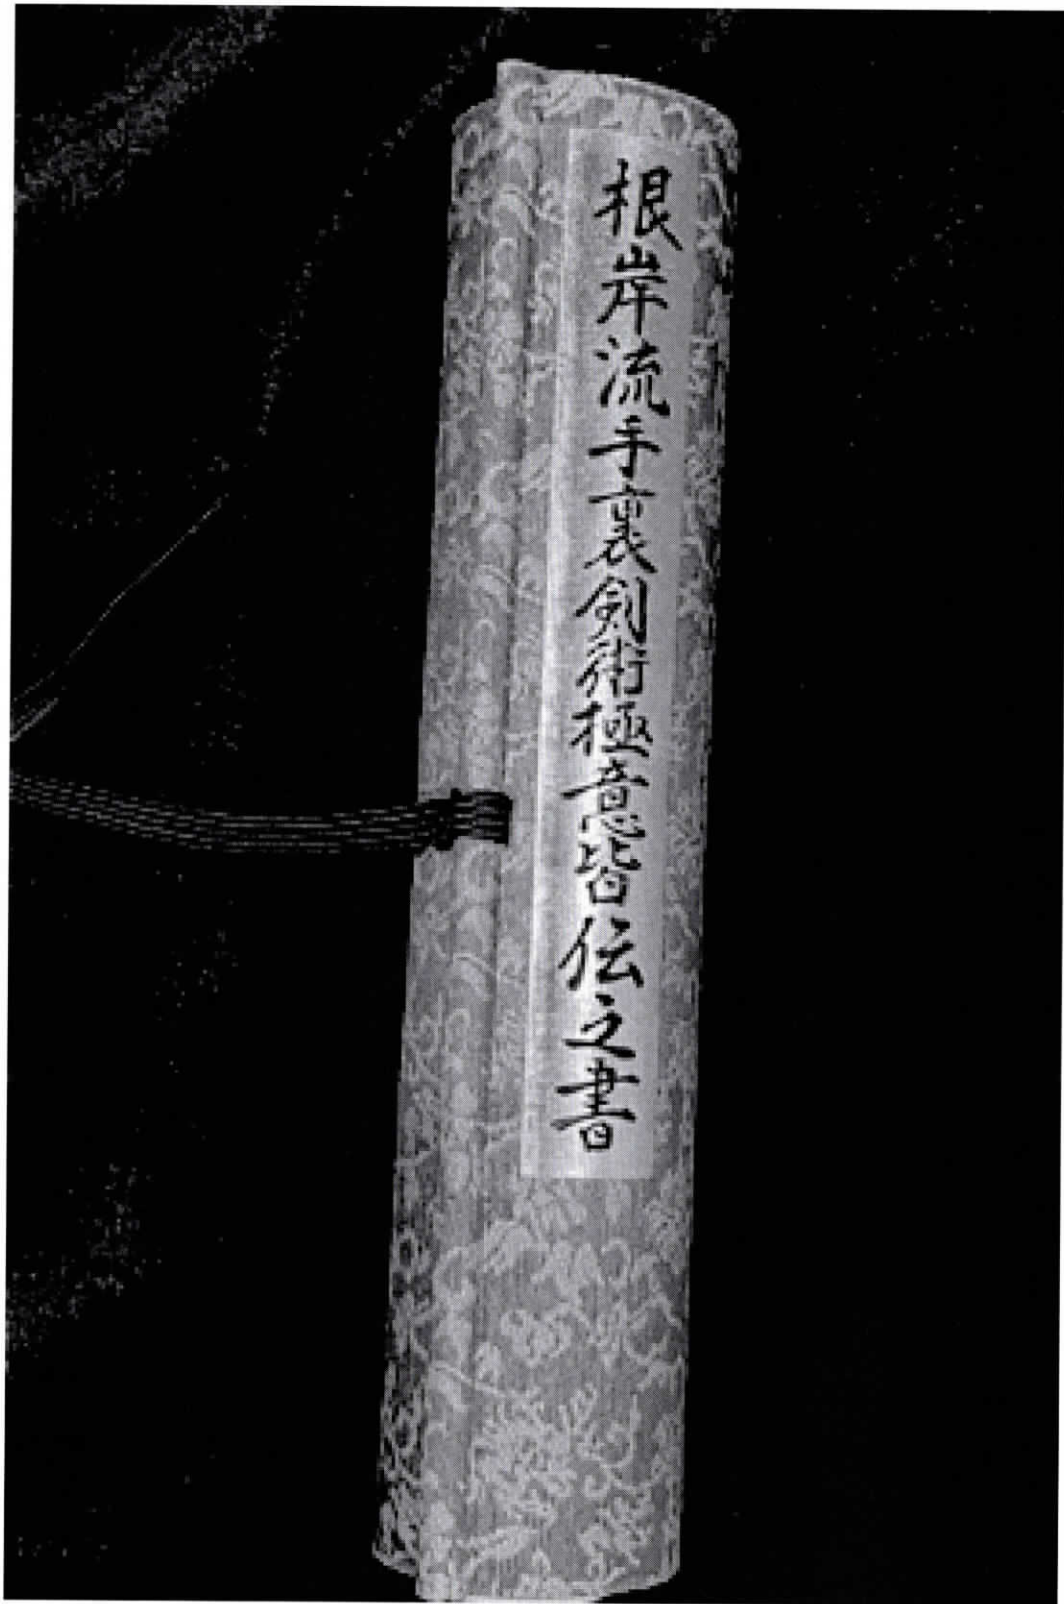 根岸流手裏剣術極意皆伝之書